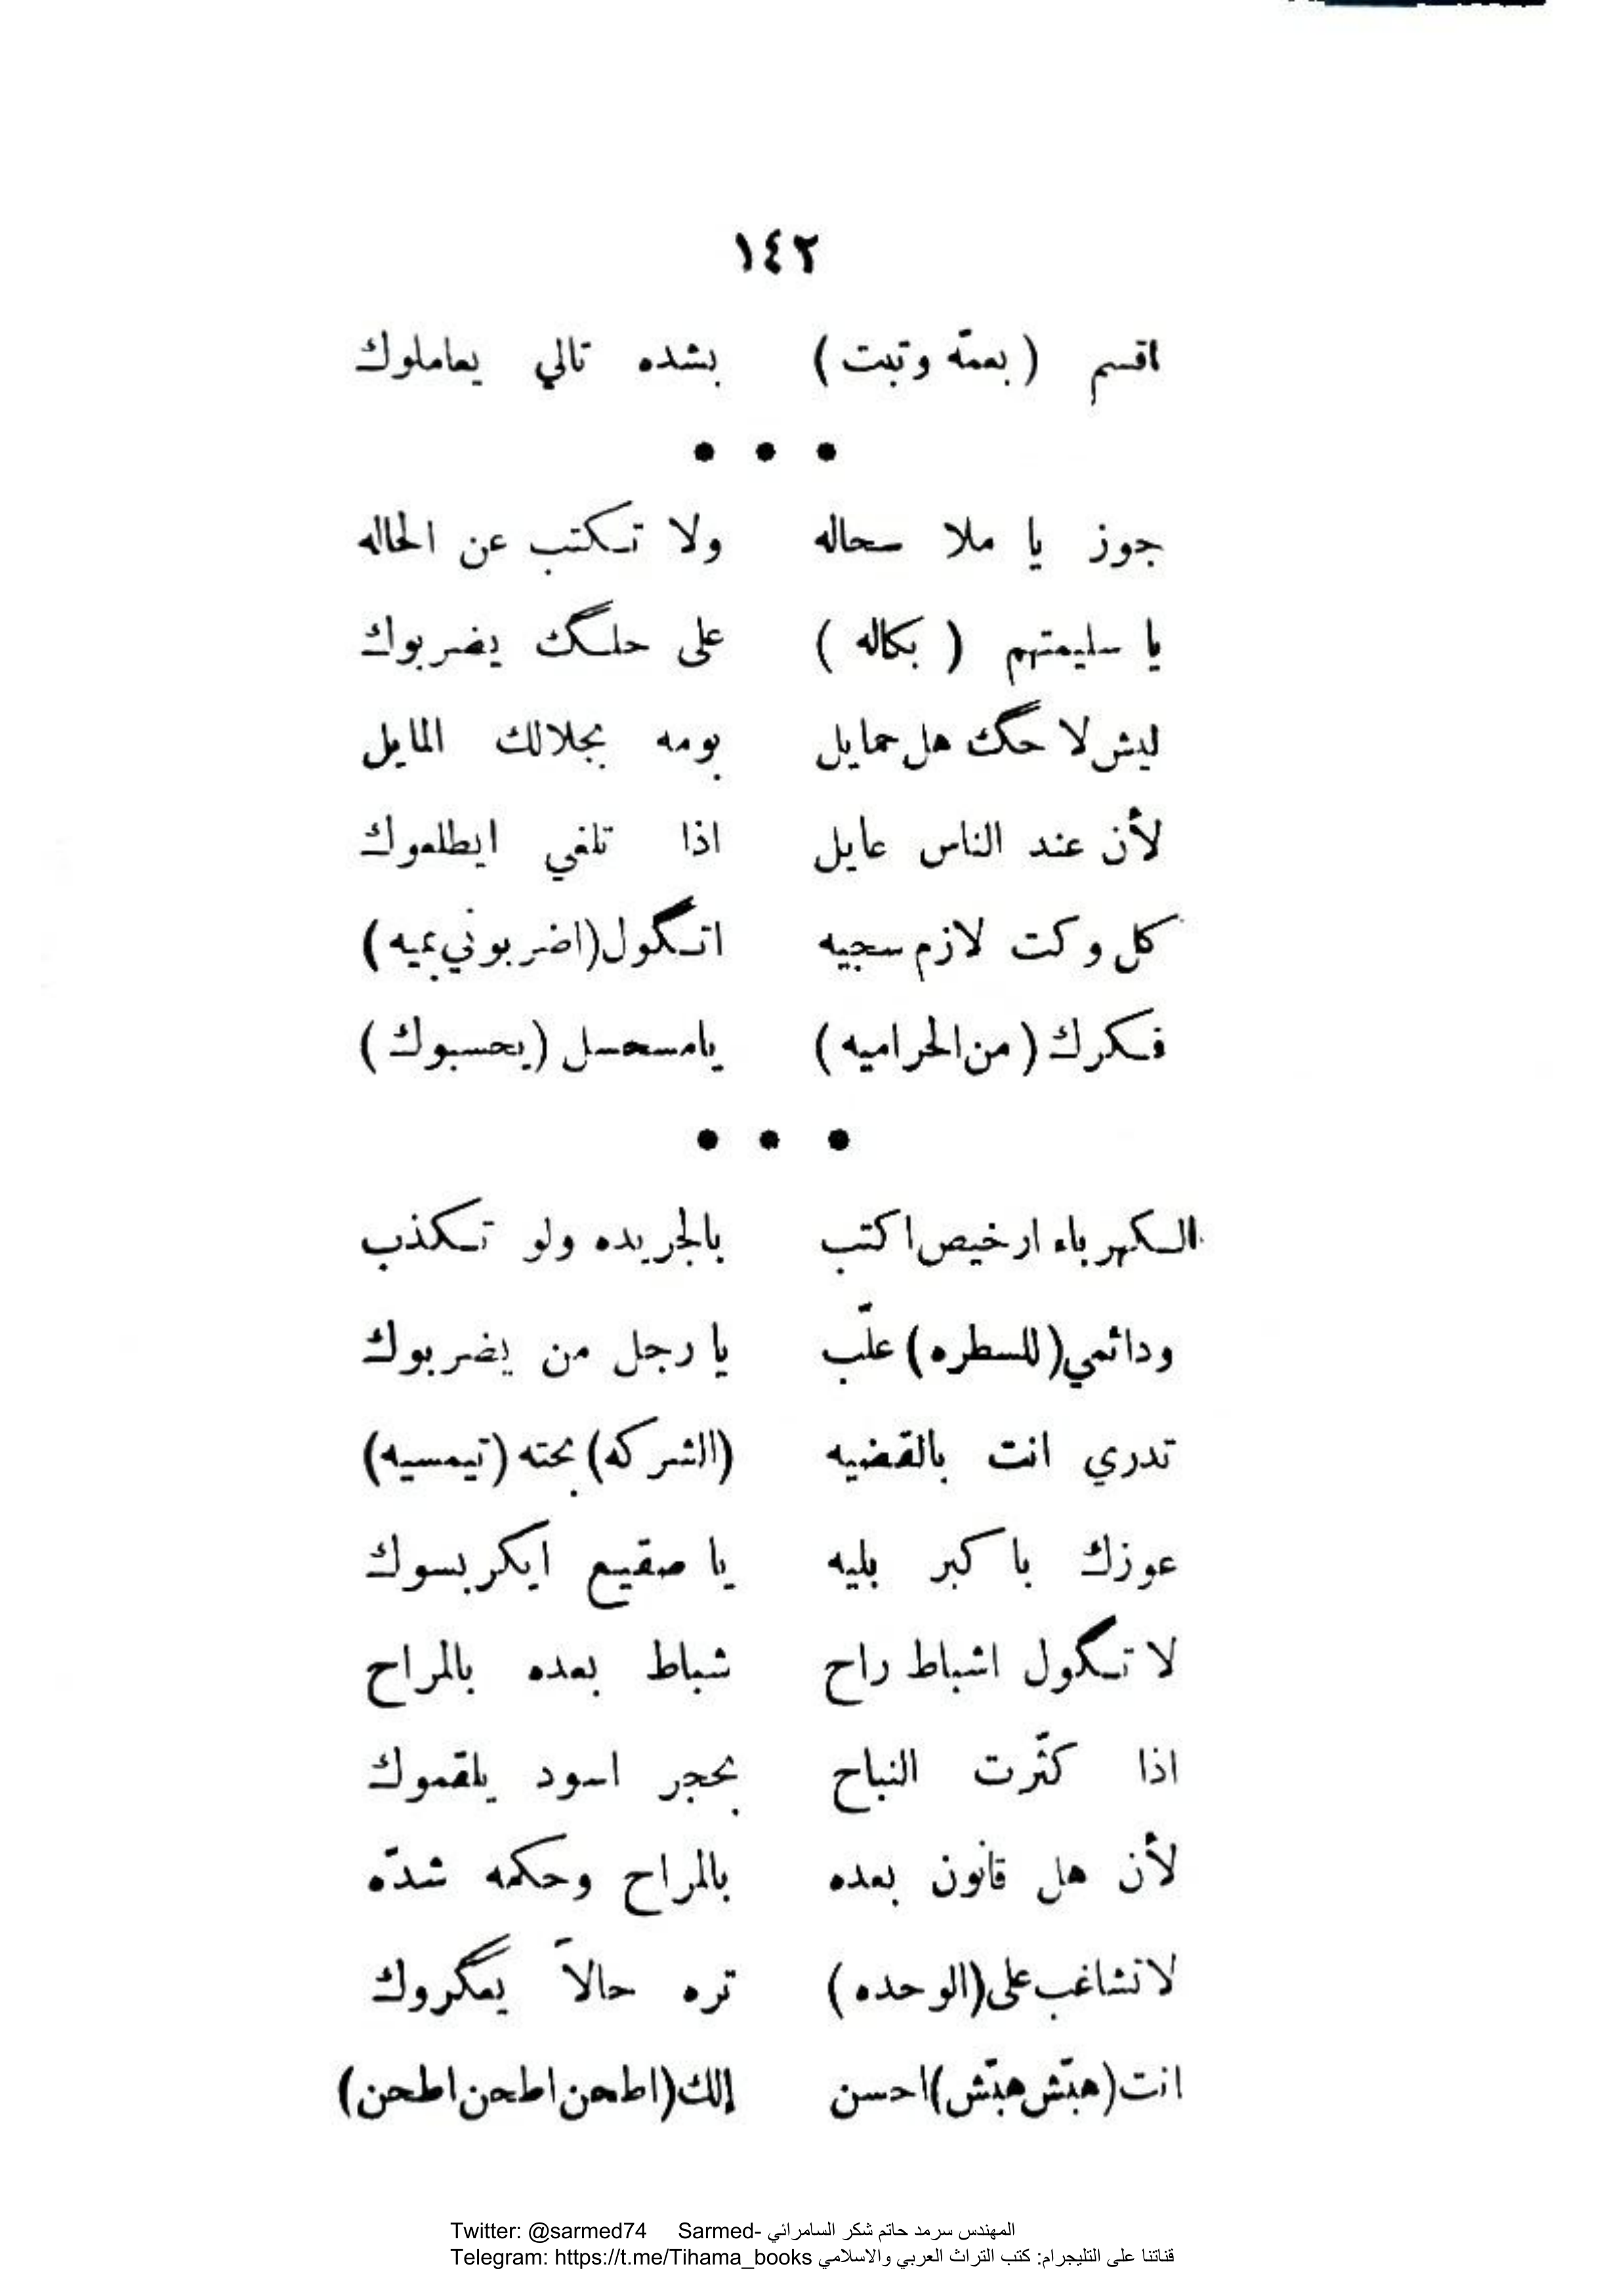 ١٤٢
اقسم ( بعمّه وتبت ) بشده تالي يعاملوك
• • •
جوز يا ملا سحاله ولا تكتب عن الحاله
يا سليمتهم ( بكاله ) على حلگك يضربوك
ليش لا حگك هل حمايل بومه بجلالك المايل
لأن عند الناس عايل اذا تلغي ايطلعوك
كل وكت لازم سجيه اتگول (اضربوني بميه )
فكرك ( من الحراميه ) يامسحسل (يحسبوك )
• • •
الكهرباء ارخيص اكتب بالجريده ولو تكذب
ودائمي (للسطره ) علّب يا رجل من يضربوك
تدري انت بالقضيه (الشركه) بحته (تيمسيه)
عوزك باكبر بليه يا صقيع ايكربسوك
لا تگول اشباط راح شباط بعده بالمراح
اذا كثّرت النباح بحجر اسود يلقموك
لأن هل قانون بعده بالمراح وحكمه شدّه
لا تشاغب على (الوحده ) تره حالاً يعگروك
انت (هبّش هبّش) احسن إلك (اطحن اطحن اطحن)
Twitter: @sarmed74 Sarmed- المهندس سرمد حاتم شكر السامرائي
Telegram: https://t.me/Tihama_books قناتنا على التليجرام: كتب التراث العربي والاسلامي